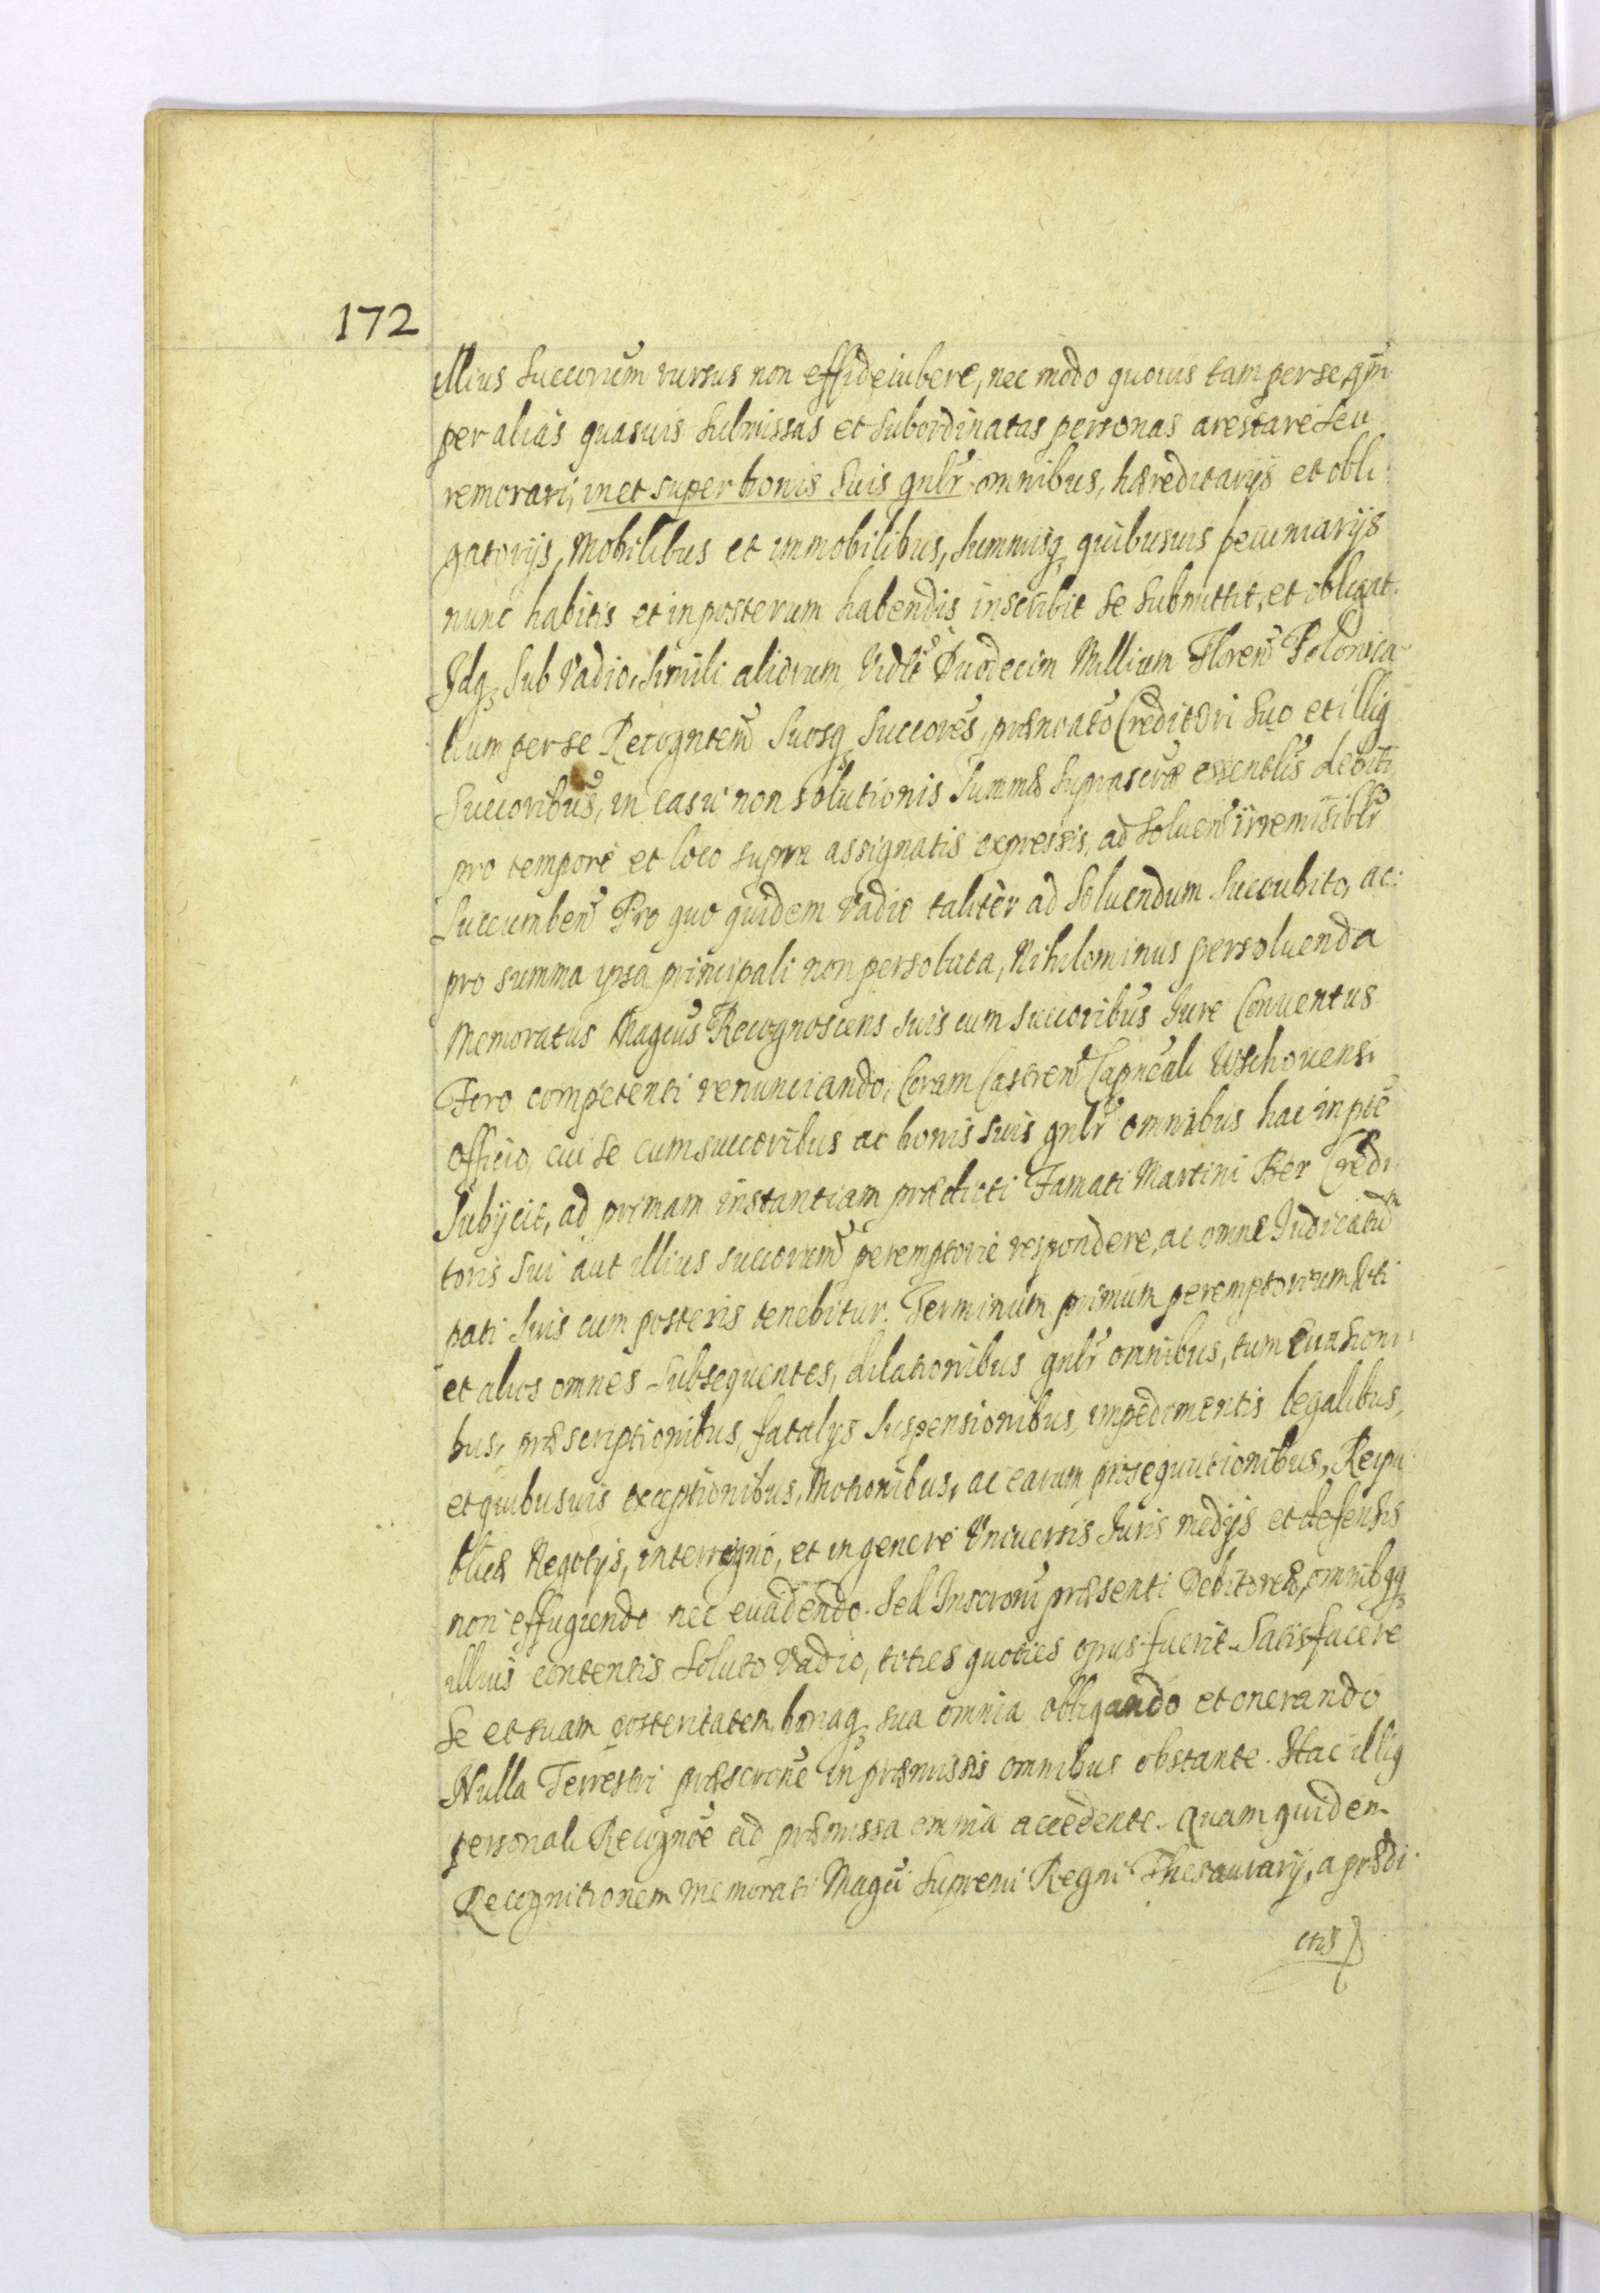 172
illius Succorum rursus non effideiubere, nec modo quouis tam per se, qm
per alias quasuis Submissas et Subordinatas personas arestare Seu
remorari, in et super bonis Suis gnlr omnibus, hæreditarijs et obli
gatorijs, Mobilibus et immobilibus, Summisq quibusuis pecuniarijs
nunc habitis et in posterum habendis inscribit Se Submittit, et obligat.
Idq Sub Vadio, Simili aliorum Vidlt Duodecim Millium Floren Polonica
lium per se Recognten Suosq Succores, prænoato Creditori Suo et illiq
Succoribus, in casu non solutionis Summæ Suprascrtæ essenlis debiti
pro tempore et loco supra assignatis expressis, ad Soluen irremisiblr
Succumben Pro quo quidem Vadio taliter ad Soluendum Succubito, ac
pro summa ipsa principali non persoluta, Nihilominus persoluenda
Memoratus Magcus Recognoscens suis cum succoribus Iure Conuentus
Foro competenti renunciando, Coram Castren Capneali Wschouensi
Officio, cui Se cum succoribus ac bonis suis gnlr omnibus hac in pte
Subijcit, ad primam instantiam prædicti Famati Martini Ber Credi
toris Sui aut illius succorum peremptorie respondere, ac omne Iudicatu
pati Suis cum posteris tenebitur. Terminum primum peremptorium Uti
et alios omnes Subsequentes, dilationibus gnlr omnibus, tum Euasioni
bus, præscriptionibus, fatalijs Suspensionibus, impedimentis legalibus,
et quibusuis exceptionibus, Motionibus, ac earum prosequutionibus, Reipu
blicæ Negotijs, interregno, et in genere Vniuersis Iuris medijs et defensis
non effugiendo nec euadendo. Sed Inscroni præsenti Debitoreæ, omnibqq
illius contentis Soluto Vadio, toties quoties opus fuerit Satisfacere
Se et suam posteritatem, bonaq sua omnia obligando et onerando
Nulla Terrestri præscrone in præmissis omnibus obstante. Hac illiq
personali Recogne ad præmissa omnia accedente. Quam quidem
Recognitionem memorati Magci Supremi Regni Thesaurarij, a prædi
ctis